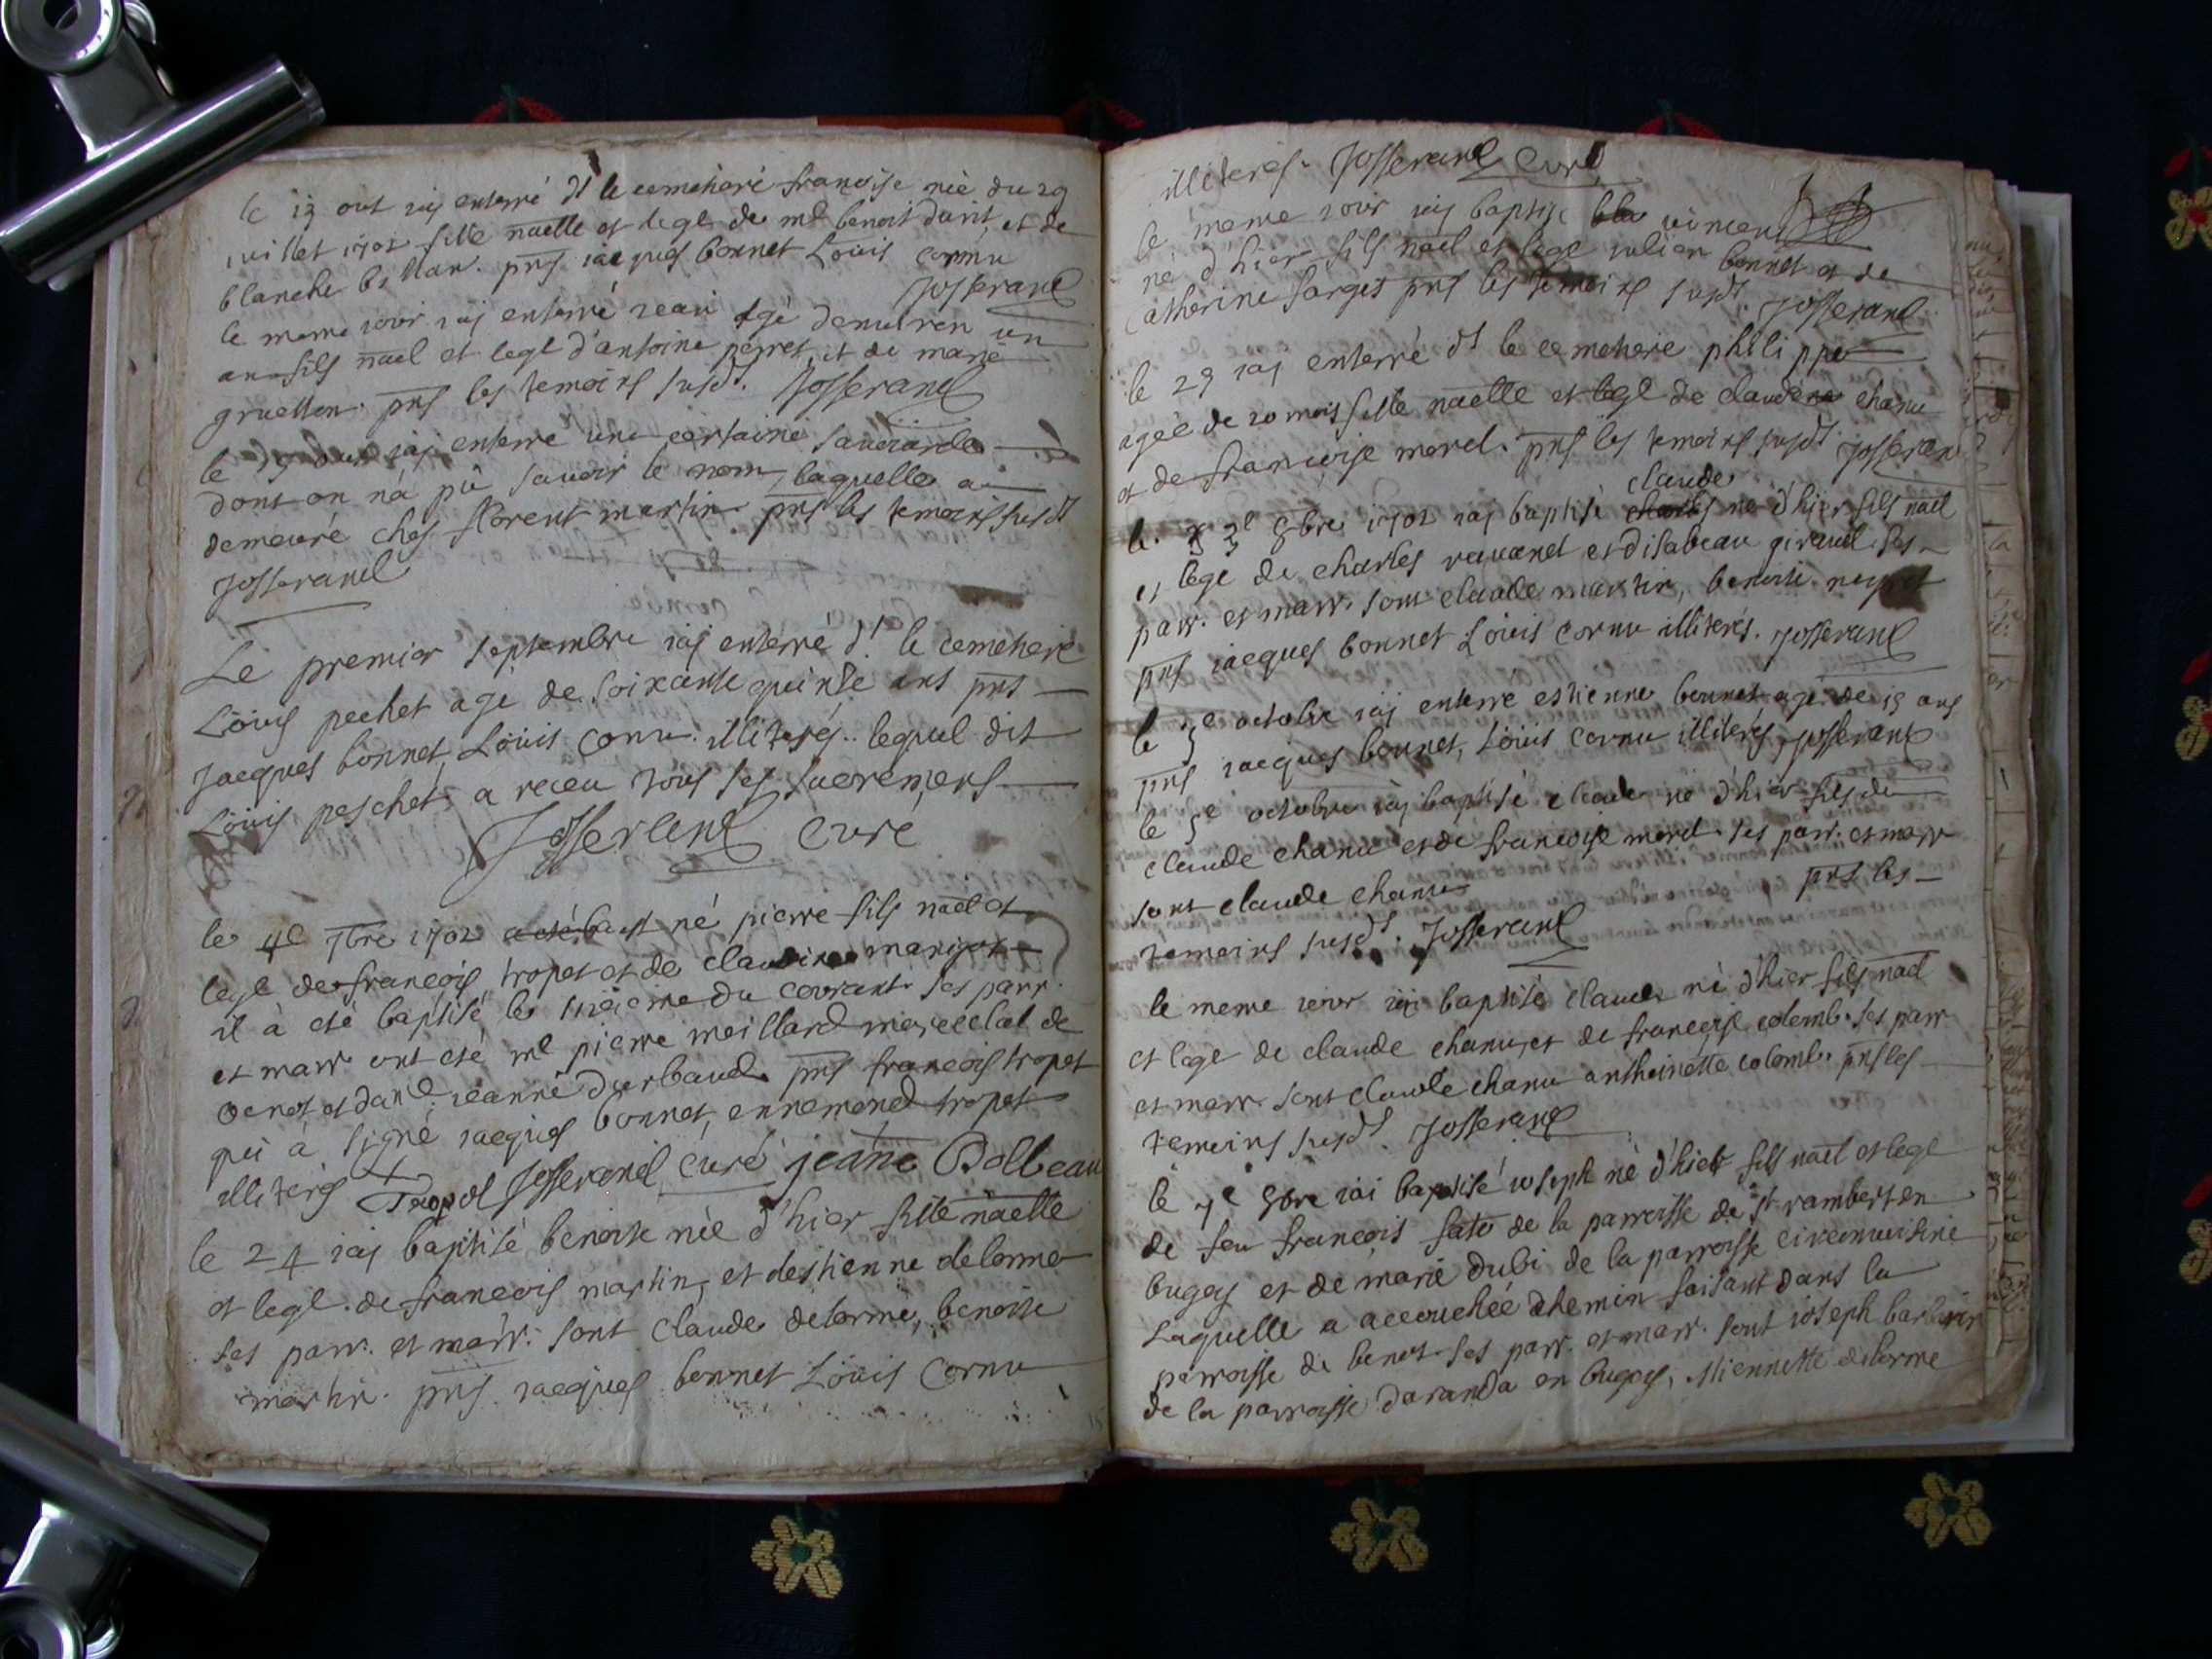 le 13 out iaj enterré dt le cemetiere francoise née du 29
iuillet 1702 fille naelle et legl de me benoit durit, et de
blanche billar. pnts iacques bonnet Loüis cornu
Josserand
le meme iour iaj enterré iean agé denuiron un
an fils nael et legl d'antoine perret, et de marie
gruellon. pnts les temoins susdt. Josserand
le 19 out iaj enterré une certaine sauoiarde
dont on n'a pû sauoir le nom, laquelle a
demeuré ches florent martin pnts les temoins susdt
Josserand
Le premier septembre iaj enterré dt. le cemetiere
Loüis pechet agé de soixante quinse ans pnts
Jacques bonnet, Loüis cornu. illiterés.. lequel dit
Loüis peschet a receu tous ses sacremens
Josserand curé
le 4e 7bre 1702 est né pierre fils nael et
legl de francois tropet et de claudine marigot
il à eté baptisé le sixieme du courant. ses parr.
et marr. ont eté me pierre meillard
benot et dam.e ieanne pnts francois tropet
qui à signé iacques bonnet, ennemond tropet
illiterés Tropet Josserand curé jeane Dolbeau
le 24 iaj baptisé benoite née d'hier fille naelle
et legl. de francois martin, et destienne delorme
ses parr. et marr. sont claude delorme, benoite
martin. pnts iacques bonnet Loüis cornu
illiterés. Josserand curé
le meme iour iaj baptise uincent
né d'hier fils nael et legl iulien bonnet et de
Catherine farges pnts les temoins susdt. Josserand
le 29 iaj enterré dt le cemetiere philippe
agée de 20 mois fille naelle et legl de claude chanu
et de francoise morel. pnts les temoins susdt Josserand
claude
le 3e 8bre 1702 iaj baptisé charles né d'hier fils nael
et lege de charles rauanel et disabeau giraud. ses
parr. et marr. sont claude martin, benoite neyret
pnts iacques bonnet Loüis cornu illiterés. Josserand
le 3e octobre iaj enterré estienne bonnet agé de 15 ans
pnts iacques bonnet, Loüis cornu illiterés Josserand
le 5e octobre iaj baptisé claude né d'hier fils de
claude chanu et de francoise morel. ses parr. et marr
sont claude chanu pnts les
temoins susdt. Josserand
le meme iour iaj baptisé claude né d'hier fils nael
et lege de claude chanu, et de francoise colomb. ses parr
et marr. sont claude chanu anthoinette colomb. pnts les
temoins susdt. Josserand
le 7e 8bre iai baptisé ioseph né d'hier fils nael et lege
de feu francois fato de la parroisse de st rambert en
bugey et de marie dubi de la parroisse circonuoisine
Laquelle a accouchée chemin faisant dans la
parroisse de benot. ses parr. et marr. sont ioseph barbarin
de la parroisse daranda en bugey, Miennette delorme